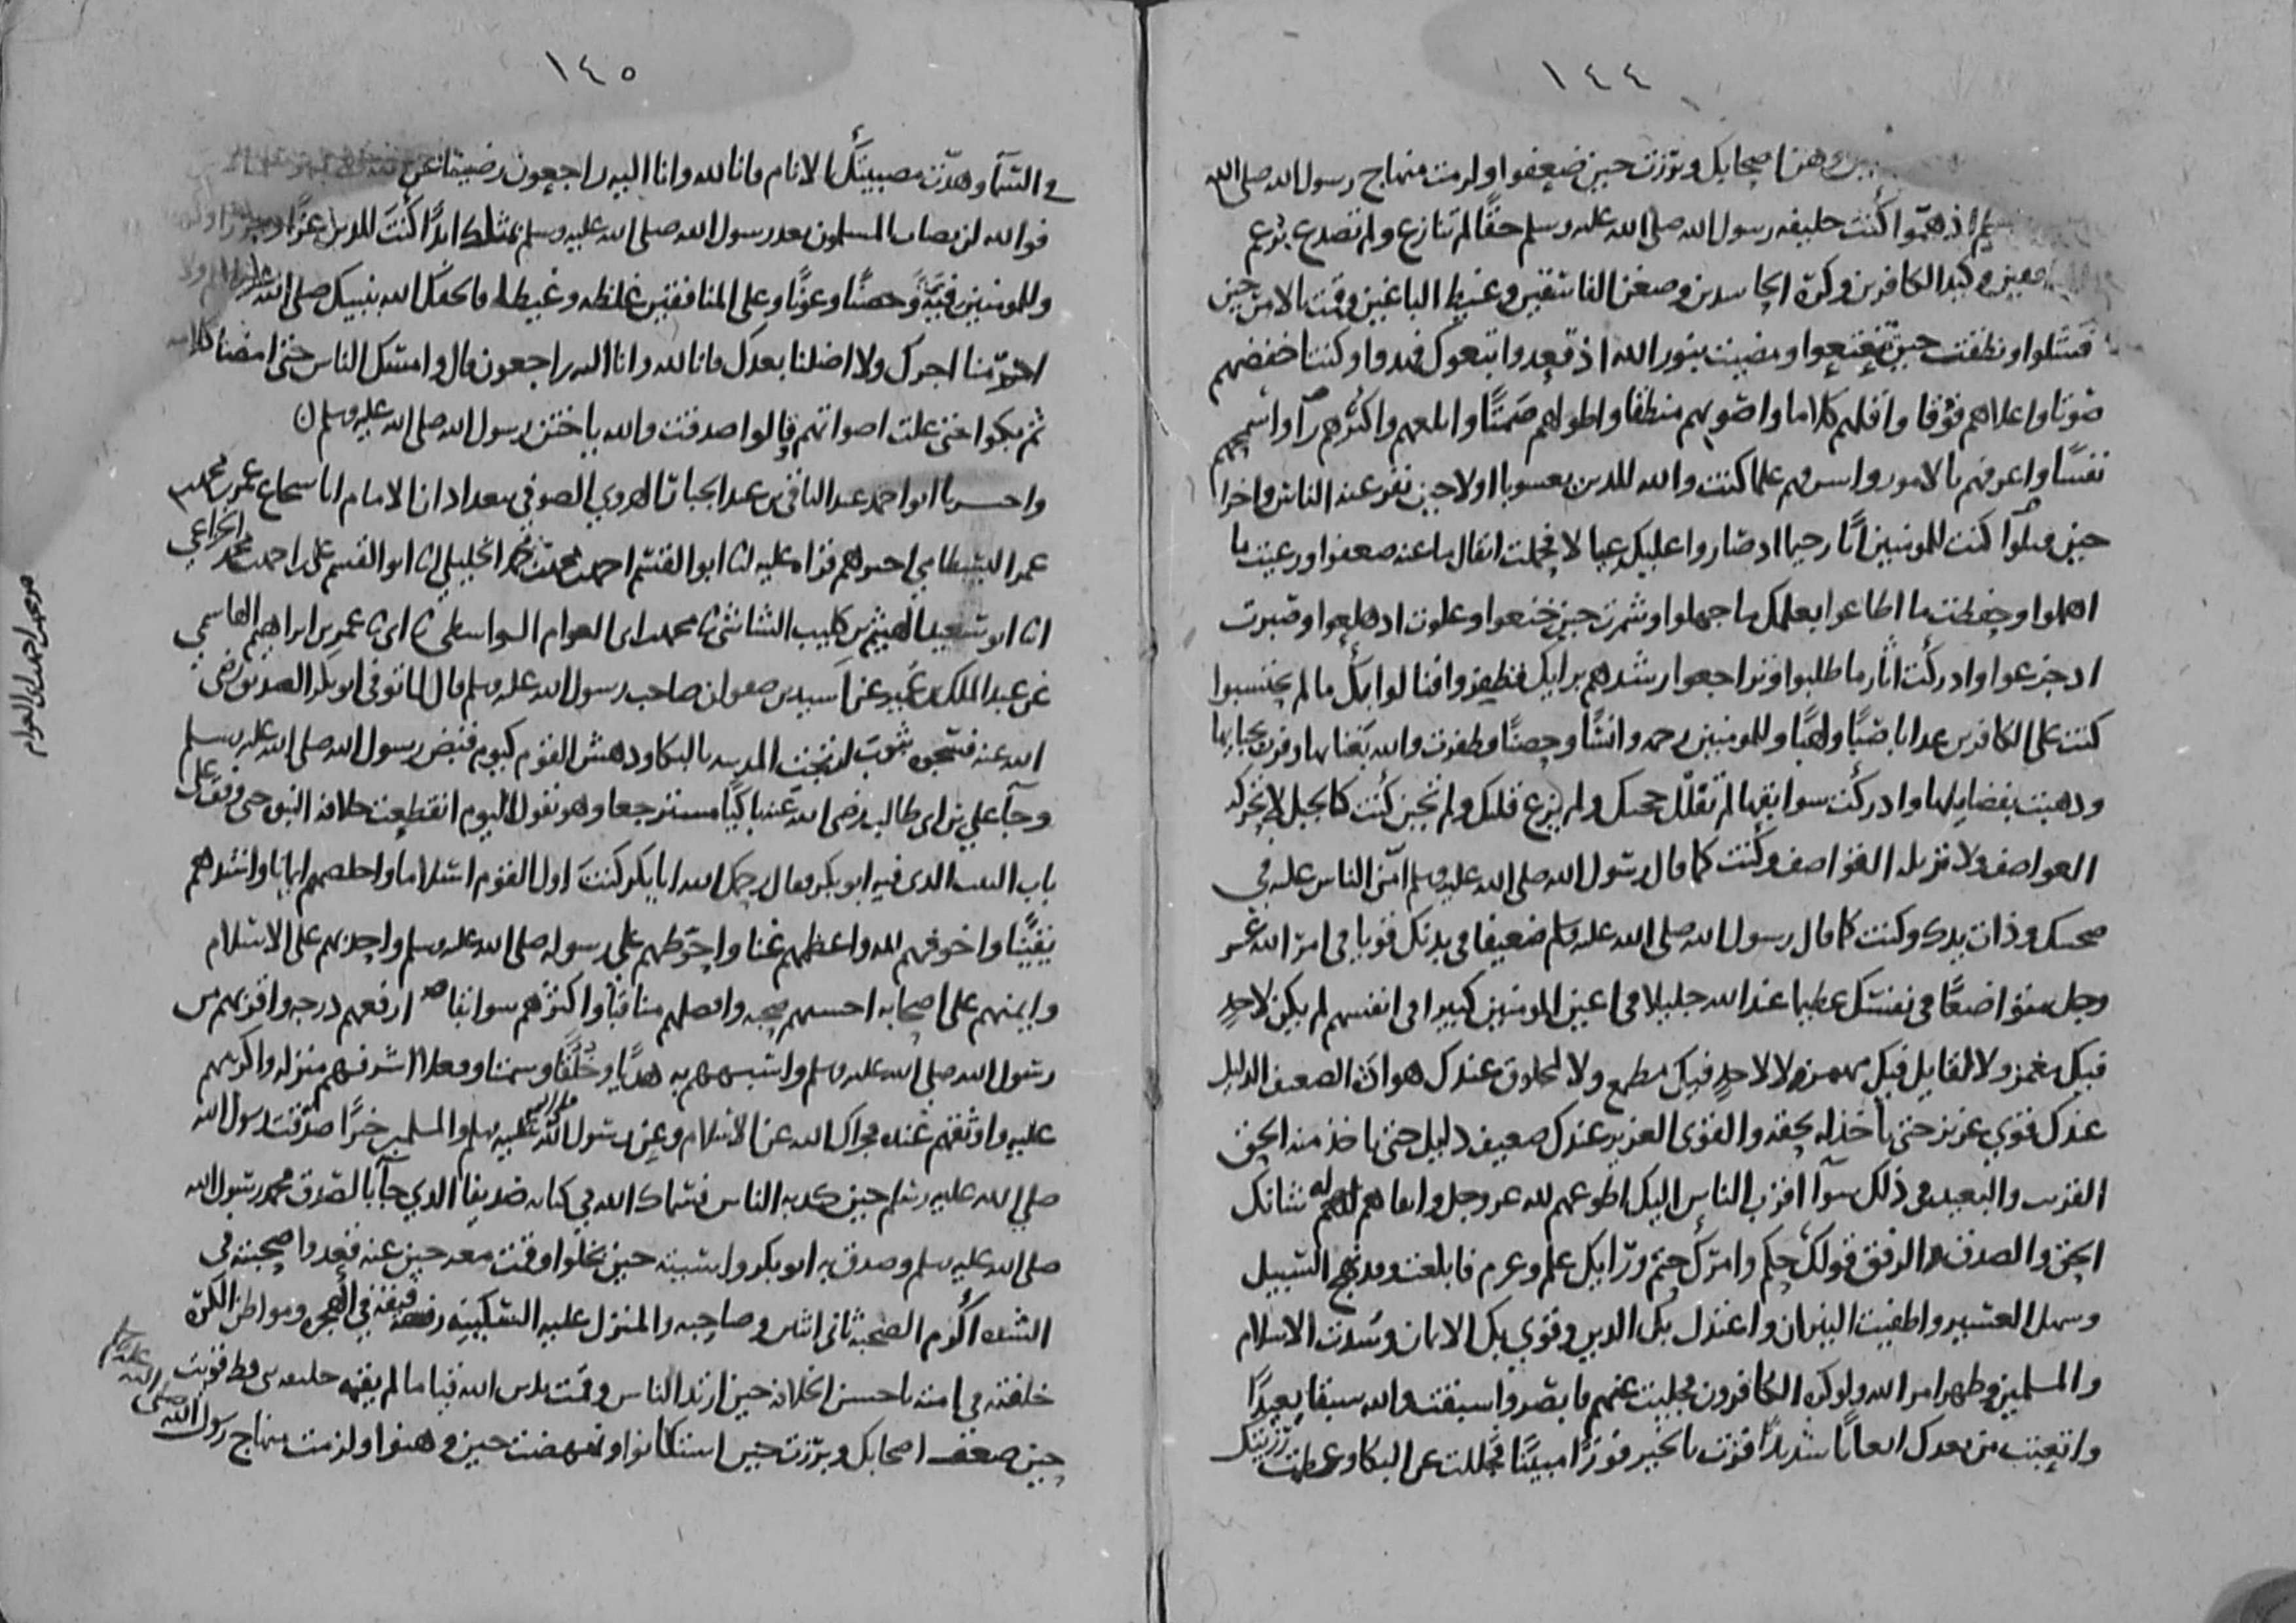 ١٤٤
وهن اصحابك وبرزت حين ضعفوا ولزمت منهاج رسول الله صلى الله
اذ همّوا كنت خليفه رسول الله صلى الله عليه وسلم حقًا لم تنازع ولم تصدع بزعم
وكبد الكافرين وكره الحاسدين وضغن الفاسقين وغيظ الباغين وقمت بالامر حين
فشلوا ونطقت حين تعتعوا ومضيت بنور الله اذ قعدوا واتبعوك فهدوا وكنت اخفضهم
صوتا واعلاهم فوقا واقلهم كلاما واصوبهم منطقا واطولهم صمتًا وابلغهم واكثرهم رآيا واشجعهم
نفسًا واعرفهم بالامور واسرفهم علما كنت والله للدين يعسوبا اولا حين نفر عنه الناس واخرا
حين فشلوا كنت للمومنين ابًا رحيما اذ صاروا عليك عيالا فحملت اثقال ما عنه ضعفوا ورعيت ما
اهملوا وحفظت ما اضاعوا بعلمك ما جهلوا وشمرت حين خنعوا وعلوت اذ هلعوا وصبرت
اذ جزعوا وادركت اثار ما طلبوا وتراجعوا رشدهم برايك فظفروا فنالوا بك ما لم يحتسبوا
كنت على الكافرين عدابا صبًا ولهبًا وللمومنين رحمه وانسًا وحصنًا فظفرت والله بغنايها وفزت بحبايها
وذهبت بفضايلها وادركت سوابقها لم تفلل حجتك ولم يزغ قلبك ولم تجبن كنت كالجبل لا تحركه
العواصف ولا تزيله القواصف وكنت كما قال رسول الله صلى الله عليه وسلم امن الناس عليه في
صحبتك وذات يدك وكنت كما قال رسول الله صلى الله عليه وسلم ضعيفا في بدنك قويا في امر الله عز
وجل متواضعًا في نفسك عظيما عند الله جليلا في اعين المومنين كبيرا في انفسهم لم يكن لاحدٍ
فيك مغمز ولا لقايل فيك مهمز ولا لاحدٍ فيك مطمع ولا لمخلوق عندك هوادة الضعيف الدليل
عندك قوي عزيز حتى تاخذ له بحقه والقوي العزيز عندك ضعيف دليل حتى تاخذ منه الحق
القريب والبعيد في ذلك سوآ اقرب الناس اليك اطوعهم لله عز وجل واتقاهم له شانك
الحق والصدق والرفق قولك حكم وامرك حتم ورايك علم وعزم فابلغت وقد نهج السبيل
وسهل العسير واطفيت النيران واعتدل بك الدين وقوي بك الايمان وسُدت الاسلام
والمسلمين وظهر امر الله ولو كره الكافرون فجليت عنهم فابصروا سبقت والله سبقا بعيدًا
واتعبت من بعدك اتعابًا شديدًا فزت بالخير فوزًا مبينًا فجللت عن البكا وعظمت رزيتك
١٤٥
في السمآ وهدّت مصيبتك الانام فانا لله وانا اليه راجعون رضينا عن
فوالله لن يصاب المسلمون بعد رسول الله صلى الله عليه وسلم بمثلك ابدًا كنت للدين عزًا
وللمومنين فيّةً وحصنًا وعونًا وعلى المنافقين غلظه وغيظا فالحقك الله بنبيك صلى الله ولا
احرمنا اجرك ولا اضلنا بعدك فانا لله وانا اليه راجعون قال وامسك الناس حتى امضا كلامه
ثم بكوا حتى علت اصواتهم وقالوا صدقت والله يا ختن رسول الله صلى الله عليه وسلم
واخبرنا ابو احمد عبد الباقي بن عبد الجبار الهروي الصوفي ببغداد انا الامام ابا شجاع عمر بن محمد
عمر البسطامي اخبرهم قراه عليه انا ابو القسم احمد بن محمد بن محمد الخليلي انا ابو القسم علي بن احمد بن محمد الخزاعي
انا ابو سعيد الهيثم بن كليب الشاشي نا محمد بن ابي العوام الواسطي نا ابي نا عمر بن ابراهيم الهاشمي
عن عبد الملك بن عمير عن اسيد بن صفوان صاحب رسول الله صلى الله عليه وسلم قال لما توفي ابو بكر الصديق رضي
الله عنه فسجوه بثوب ارتجت المدينه بالبكا ودهش القوم كيوم قبض رسول الله صلى الله عليه وسلم
وجآ علي بن ابي طالب رضي الله عنه باكيًا مسترجعا وهو يقول اليوم انقطعت خلافه النبوه حتى وقف على
باب البيت الدي فيه ابو بكر فقال رحمك الله ابا بكر كنت اول القوم اسلاما واخلصهم ايمانا واشدهم
يقينًا واخوفهم لله واعظمهم غنا واحوطهم على رسوله صلى الله عليه وسلم واحدبهم على الاسلام
وايمنهم على اصحابه احسنهم صحبه وافضلهم مناقبا واكثرهم سوابقا ارفعهم درجه واقربهم من
رسول الله صلى الله عليه وسلم واشبههم به هديًا وخلقًا وسمتا وفعلا اشرفهم منزله واكرمهم
عليه واوثقهم عنده فجزاك الله عن الاسلام وعن رسول الله عليه وسلم والمسلمين خيرًا صدقت رسول الله
صلى الله عليه وسلم حين كذبه الناس فسماك الله في كتابه صديقا الدي جآ بالصدق محمد رسول الله
صلى الله عليه وسلم وصدق به ابو بكر واسيته حين بخلوا وقمت معه حين عنه قعدوا صحبته في
الشده اكرم الصحبه ثاني اثنين وصاحبه والمنزل عليه السكينه رفيقه في الهجره ومواطن الكره
خلفته في امته باحسن الخلافه حين ارتد الناس وقمت بدين الله قياما لم يقمه خليفه نبي قط قويت
حين ضعف اصحابك وبرزت حين استكانوا ونهضت حين وهنوا ولزمت منهاج رسول الله صلى الله عليه وسلم